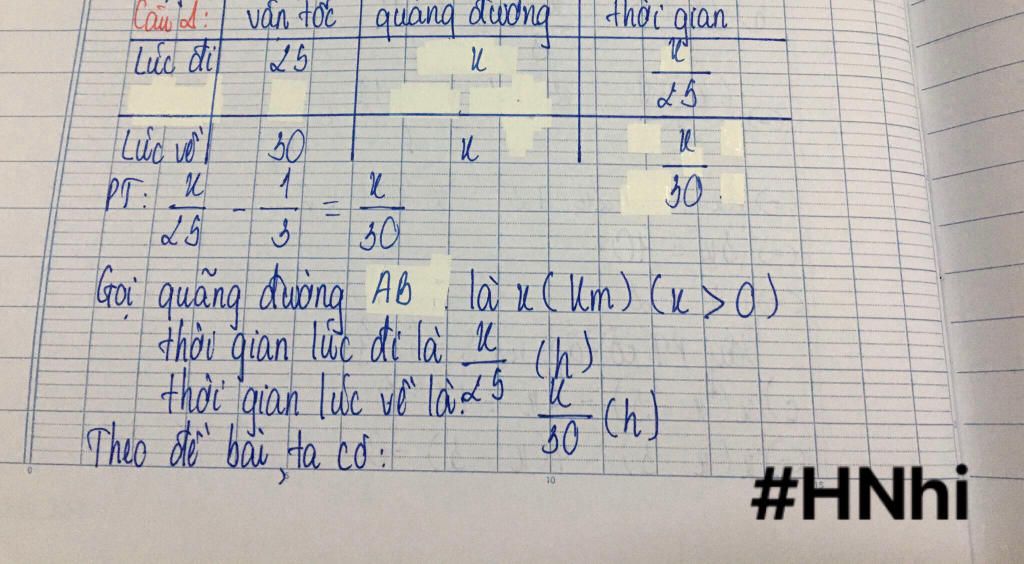 Câu 2: vận tốc quãng đường thời gian
Lúc đi 25 x x/25
Lúc về 30 x x/30
PT: x/25 - 1/3 = x/30
Gọi quãng đường AB là x (km) (x > 0)
thời gian lúc đi là x/25 (h)
thời gian lúc về là: x/30 (h)
Theo đề bài, ta có:
0 5 10 15
#HNhi